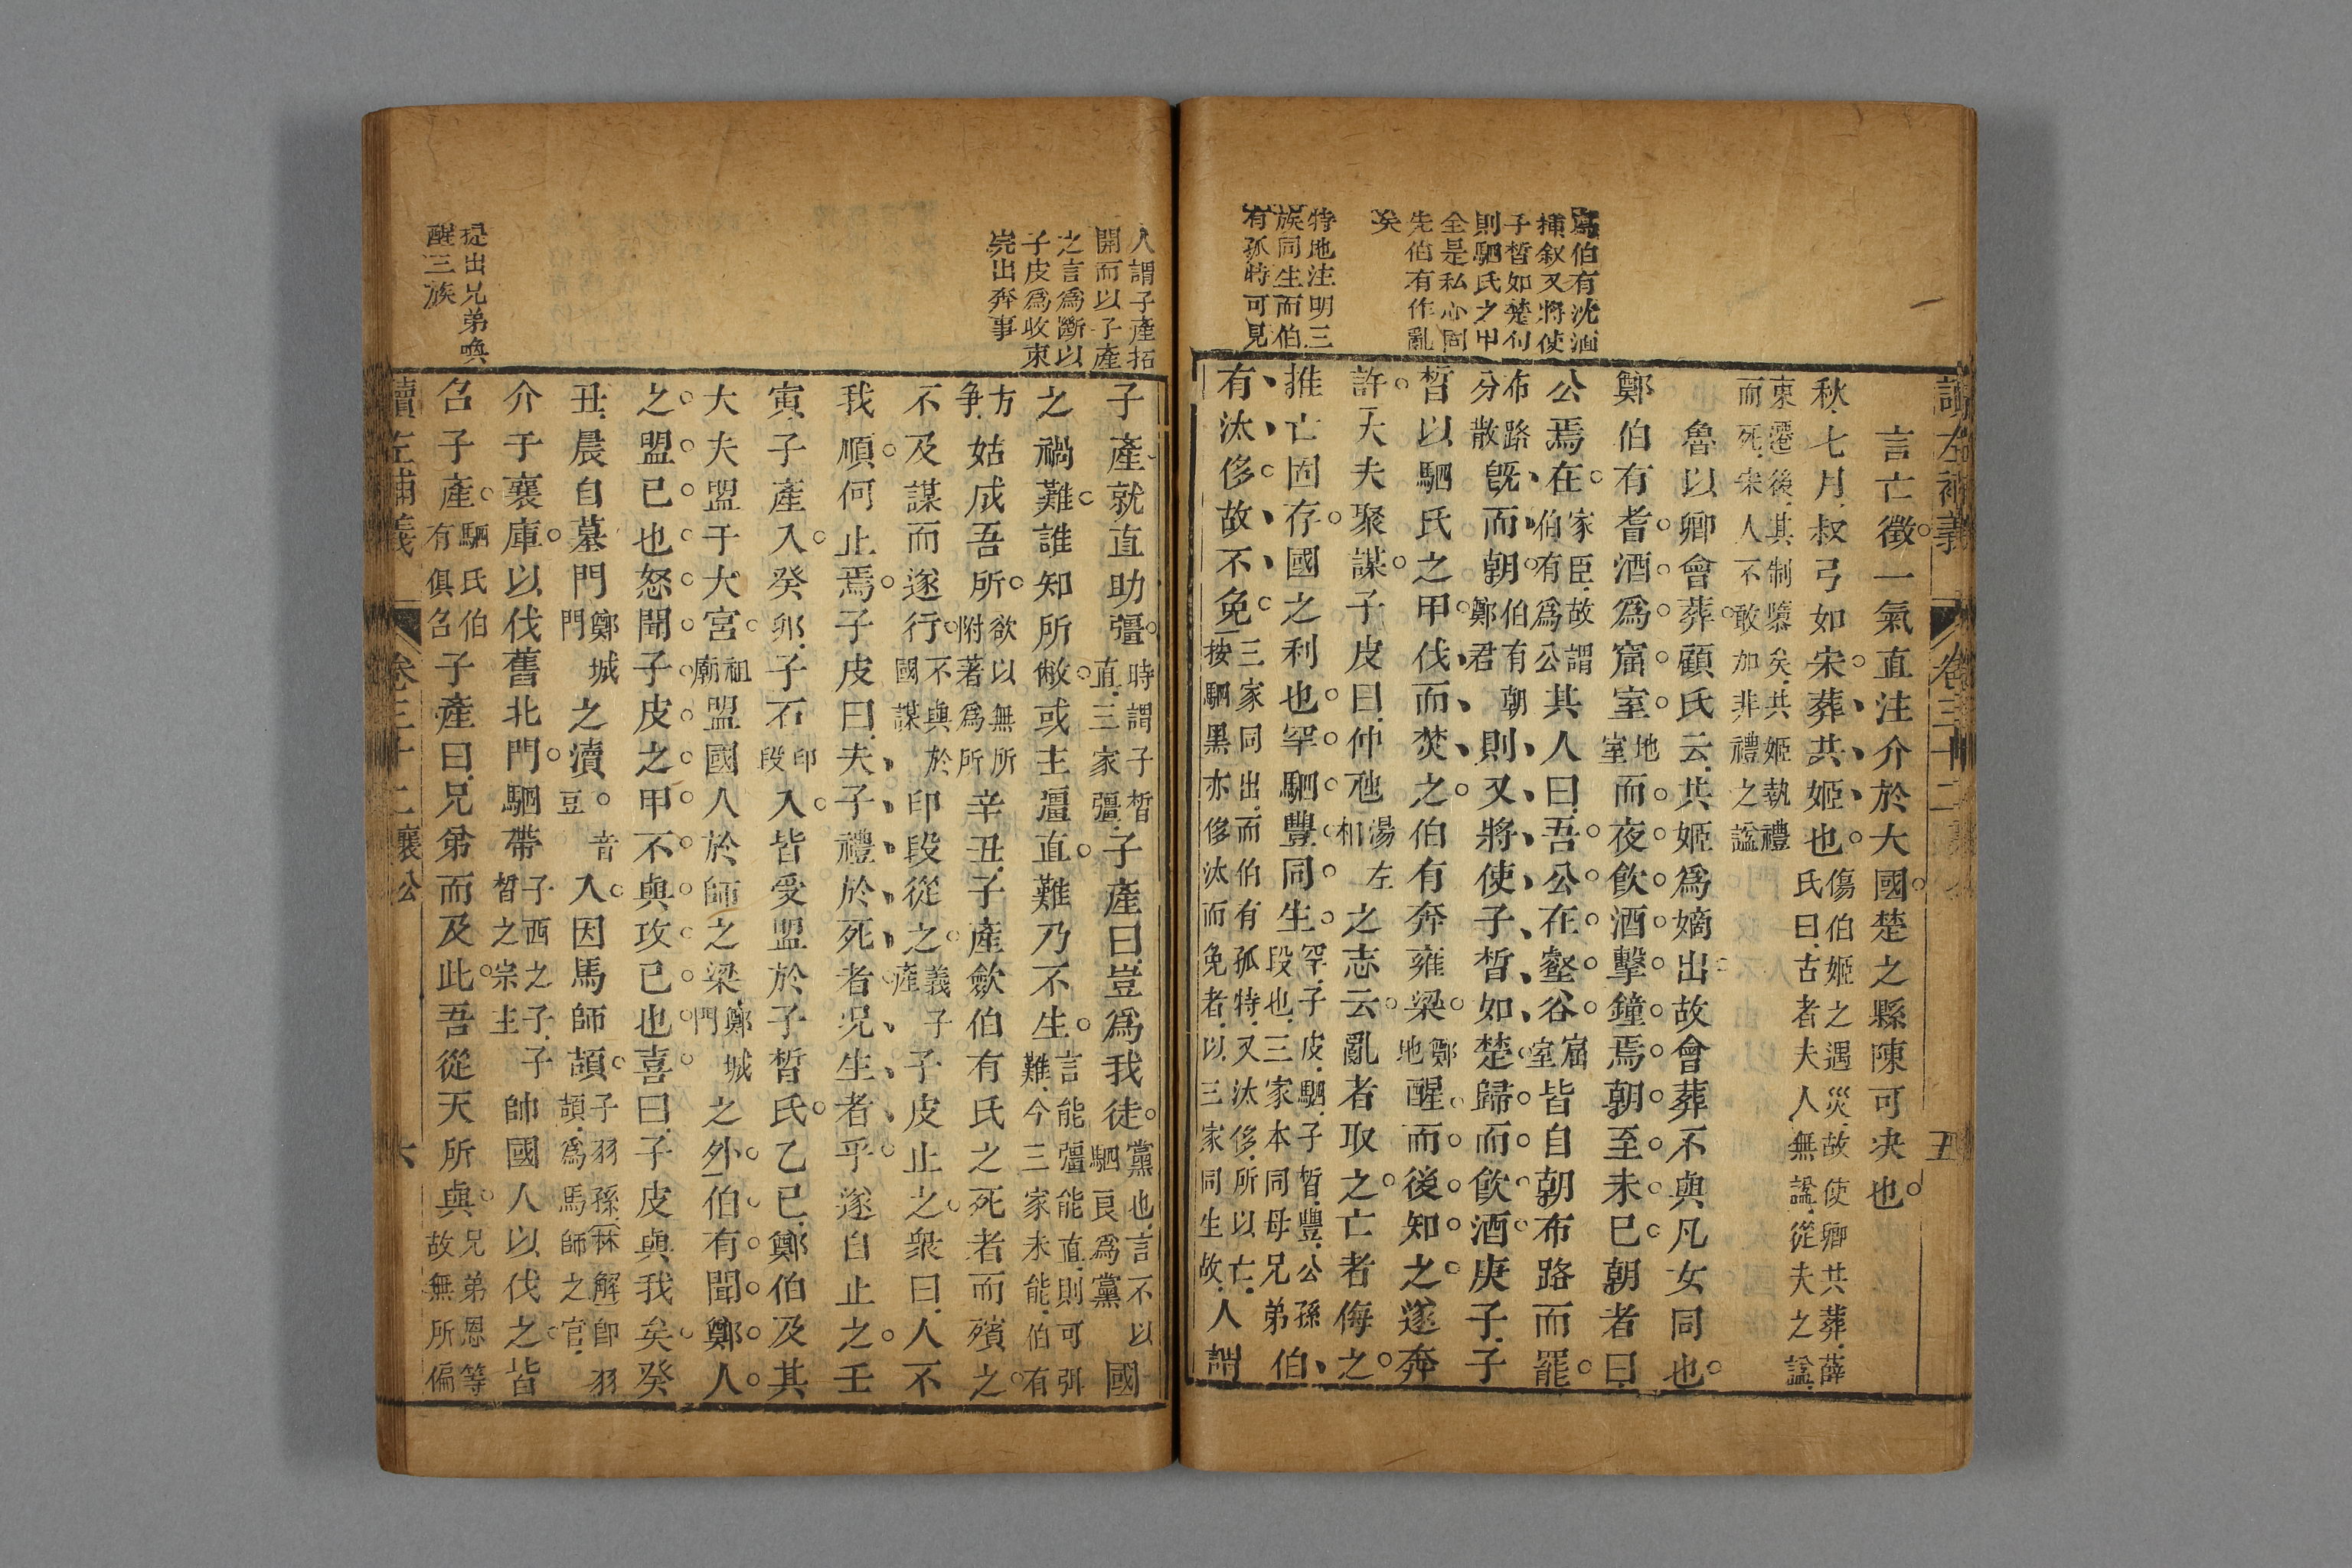 讀左補義
卷三十二
五
寫伯有沈湎
揷叙又將使
子晳如楚句
則駟氏之甲
全是私心同
先伯有作亂
矣
特地注明三
族同生而伯
有孤特可見
言亡徵一氣直注介於大國楚之縣陳可決也
秋七月叔弓如宋葬共姬也傷伯姬之遇災故使卿共葬薛
氏曰古者夫人無諡從夫之諡
東遷後其制隳矣共姬執禮
而死宋人不敢加非禮之諡
魯以卿會葬顧氏云共姬爲嫡出故會葬不與凡女同也
鄭伯有耆酒爲窟室地室而夜飲酒擊鐘焉朝至未已朝者曰
公焉在家臣故謂伯有爲公其人曰吾公在壑谷窟室皆自朝布路而罷
布路分散旣而朝伯有朝鄭君則又將使子晳如楚歸而飲酒庚子子
晳以駟氏之甲伐而焚之伯有奔雍梁鄭地醒而後知之遂奔
許大夫聚謀子皮曰仲虺湯左相之志云亂者取之亡者侮之
推亡固存國之利也罕駟豐同生罕子皮駟子晳豐公孫段也三家本同母兄弟伯
有汰侈故不免三家同出而伯有孤特又汰侈所以亡按駟黑亦侈汰而免者以三家同生故人謂
人謂子產拓
開而以子產
之言爲斷以
子皮爲收束
完出奔事
提出兄弟喚
醒三族
子產就直助彊時謂子晳直三家彊子產曰豈爲我徒黨也言不以駟良爲黨國
之禍難誰知所敝或主彊直難乃不生言能彊能直則可弭難今三家未能伯有
方爭姑成吾所欲以無所附著爲所辛丑子產斂伯有氏之死者而殯之
不及謀而遂行不與於國謀印段從之義子產子皮止之衆曰人不
我順何止焉子皮曰夫子禮於死者況生者乎遂自止之壬
寅子產入癸卯子石印段入皆受盟於子晳氏乙巳鄭伯及其
大夫盟于大宮祖廟盟國人於師之梁鄭城門之外伯有聞鄭人
之盟己也怒聞子皮之甲不與攻己也喜曰子皮與我矣癸
丑晨自墓門鄭城門之瀆音豆入因馬師頡子羽孫秝解卽羽頡爲馬師之官
介于襄庫以伐舊北門駟帶子西之子子晳之宗主子帥國人以伐之皆
召子產駟氏伯有俱召子產曰兄弟而及此吾從天所與兄弟恩等故無所偏
讀左補義
卷三十二
襄公
六